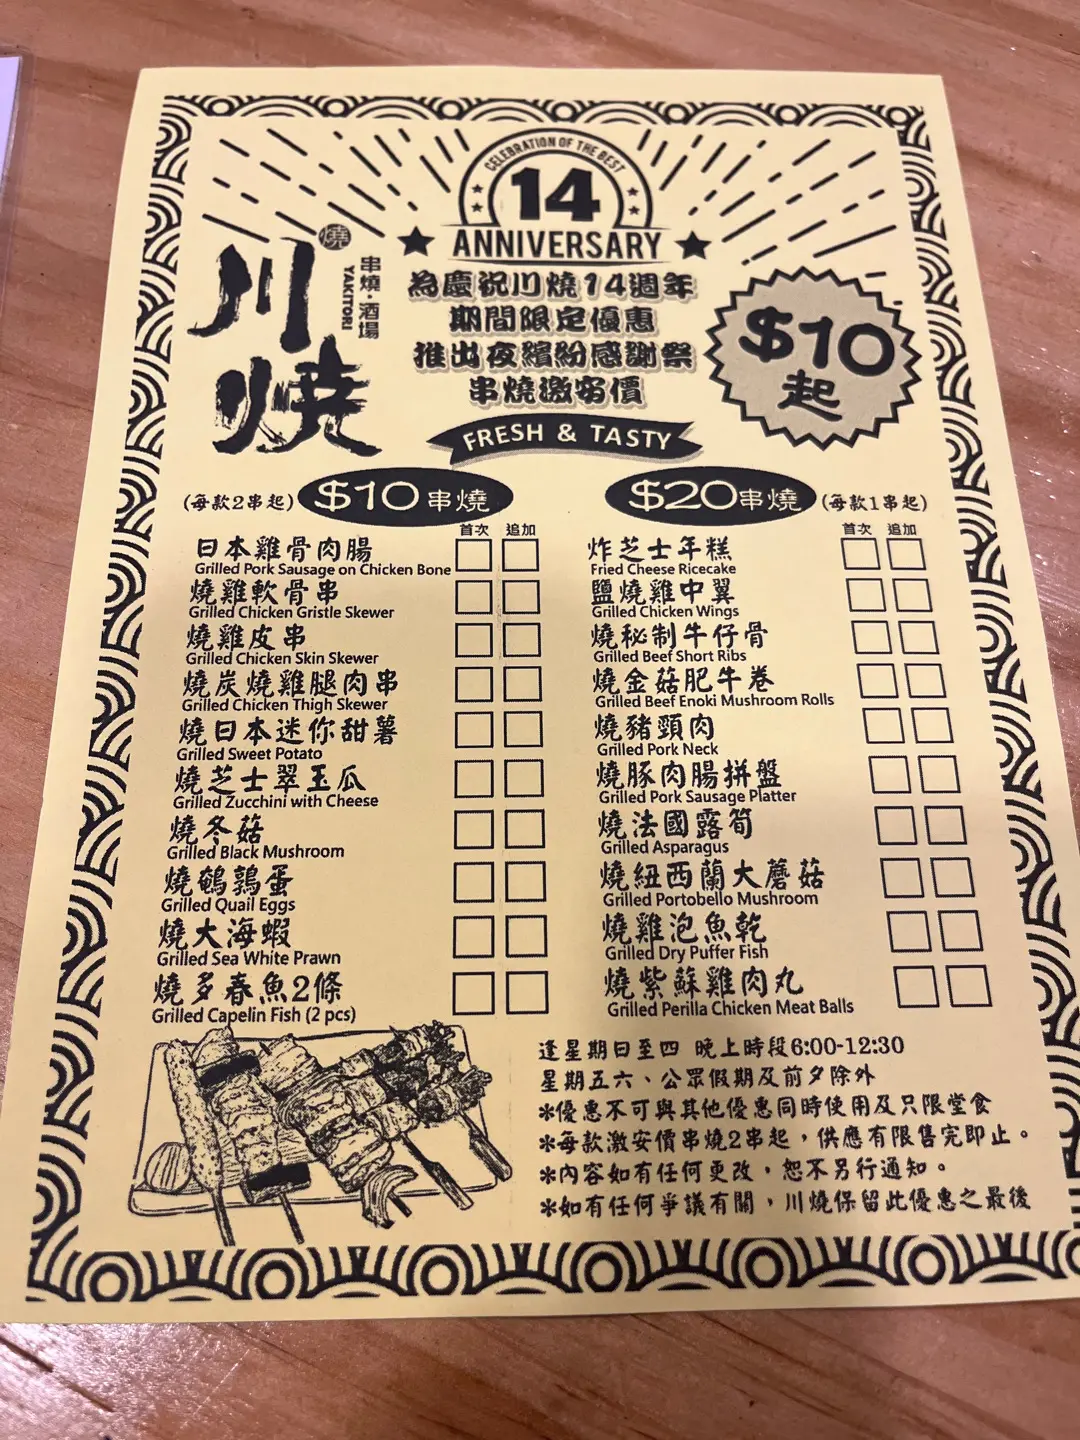 CELEBRATION OF THE BEST
14
ANNIVERSARY
川燒
燒
串燒·酒場
YAKITORI
為慶祝川燒14週年
期間限定優惠
推出夜繽紛感謝祭
串燒激安價
$10
起
FRESH & TASTY
(每款2串起) $10串燒
首次 追加
日本雞骨肉腸
Grilled Pork Sausage on Chicken Bone
燒雞軟骨串
Grilled Chicken Gristle Skewer
燒雞皮串
Grilled Chicken Skin Skewer
燒炭燒雞腿肉串
Grilled Chicken Thigh Skewer
燒日本迷你甜薯
Grilled Sweet Potato
燒芝士翠玉瓜
Grilled Zucchini with Cheese
燒冬菇
Grilled Black Mushroom
燒鵪鶉蛋
Grilled Quail Eggs
燒大海蝦
Grilled Sea White Prawn
燒多春魚2條
Grilled Capelin Fish (2 pcs)
$20串燒 (每款1串起)
首次 追加
炸芝士年糕
Fried Cheese Ricecake
鹽燒雞中翼
Grilled Chicken Wings
燒秘制牛仔骨
Grilled Beef Short Ribs
燒金菇肥牛卷
Grilled Beef Enoki Mushroom Rolls
燒豬頸肉
Grilled Pork Neck
燒豚肉腸拼盤
Grilled Pork Sausage Platter
燒法國露筍
Grilled Asparagus
燒紐西蘭大蘑菇
Grilled Portobello Mushroom
燒雞泡魚乾
Grilled Dry Puffer Fish
燒紫蘇雞肉丸
Grilled Perilla Chicken Meat Balls
逢星期日至四 晚上時段6:00-12:30
星期五六、公眾假期及前夕除外
*優惠不可與其他優惠同時使用及只限堂食
*每款激安價串燒2串起，供應有限售完即止。
*內容如有任何更改，恕不另行通知。
*如有任何爭議有關，川燒保留此優惠之最後